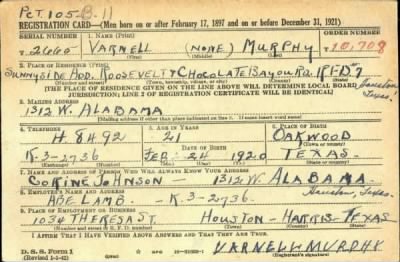 PCT 105-B-11
REGISTRATION CARD—(Men born on or after February 17, 1897 and on or before December 31, 1921)
SERIAL NUMBER 1. NAME (Print) ORDER NUMBER
2660 VARNELL (NONE) MURPHY 10,708
(First) (Middle) (Last)
2. PLACE OF RESIDENCE (Print)
SUNNYSIDE ADD. ROOSEVELT & CHOCOLATE BAYOU RD. RFD #7 Houston, Texas.
(Number and street) (Town, township, village, or city) (County) (State)
[THE PLACE OF RESIDENCE GIVEN ON THE LINE ABOVE WILL DETERMINE LOCAL BOARD JURISDICTION; LINE 2 OF REGISTRATION CERTIFICATE WILL BE IDENTICAL]
3. MAILING ADDRESS
1312 W. ALABAMA
[Mailing address if other than place indicated on line 2. If same insert word same]
4. TELEPHONE 5. AGE IN YEARS 6. PLACE OF BIRTH
H. 8492 21 OAKWOOD
DATE OF BIRTH (Town or county)
K-3-2736 FEB. 24 1920 TEXAS.
(Exchange) (Number) (Mo.) (Day) (Yr.) (State or country)
7. NAME AND ADDRESS OF PERSON WHO WILL ALWAYS KNOW YOUR ADDRESS
CORINE JOHNSON — 1312 W. ALABAMA
Houston, Texas.
8. EMPLOYER'S NAME AND ADDRESS
ABE LAMB. - K-3-2736.
9. PLACE OF EMPLOYMENT OR BUSINESS
1034 THERESA ST. HOUSTON - HARRIS - TEXAS
(Number and street or R. F. D. number) (Town) (County) (State)
I AFFIRM THAT I HAVE VERIFIED ABOVE ANSWERS AND THAT THEY ARE TRUE.
D. S. S. Form 1
(Revised 1-1-42) (over) VARNELL MURPHY